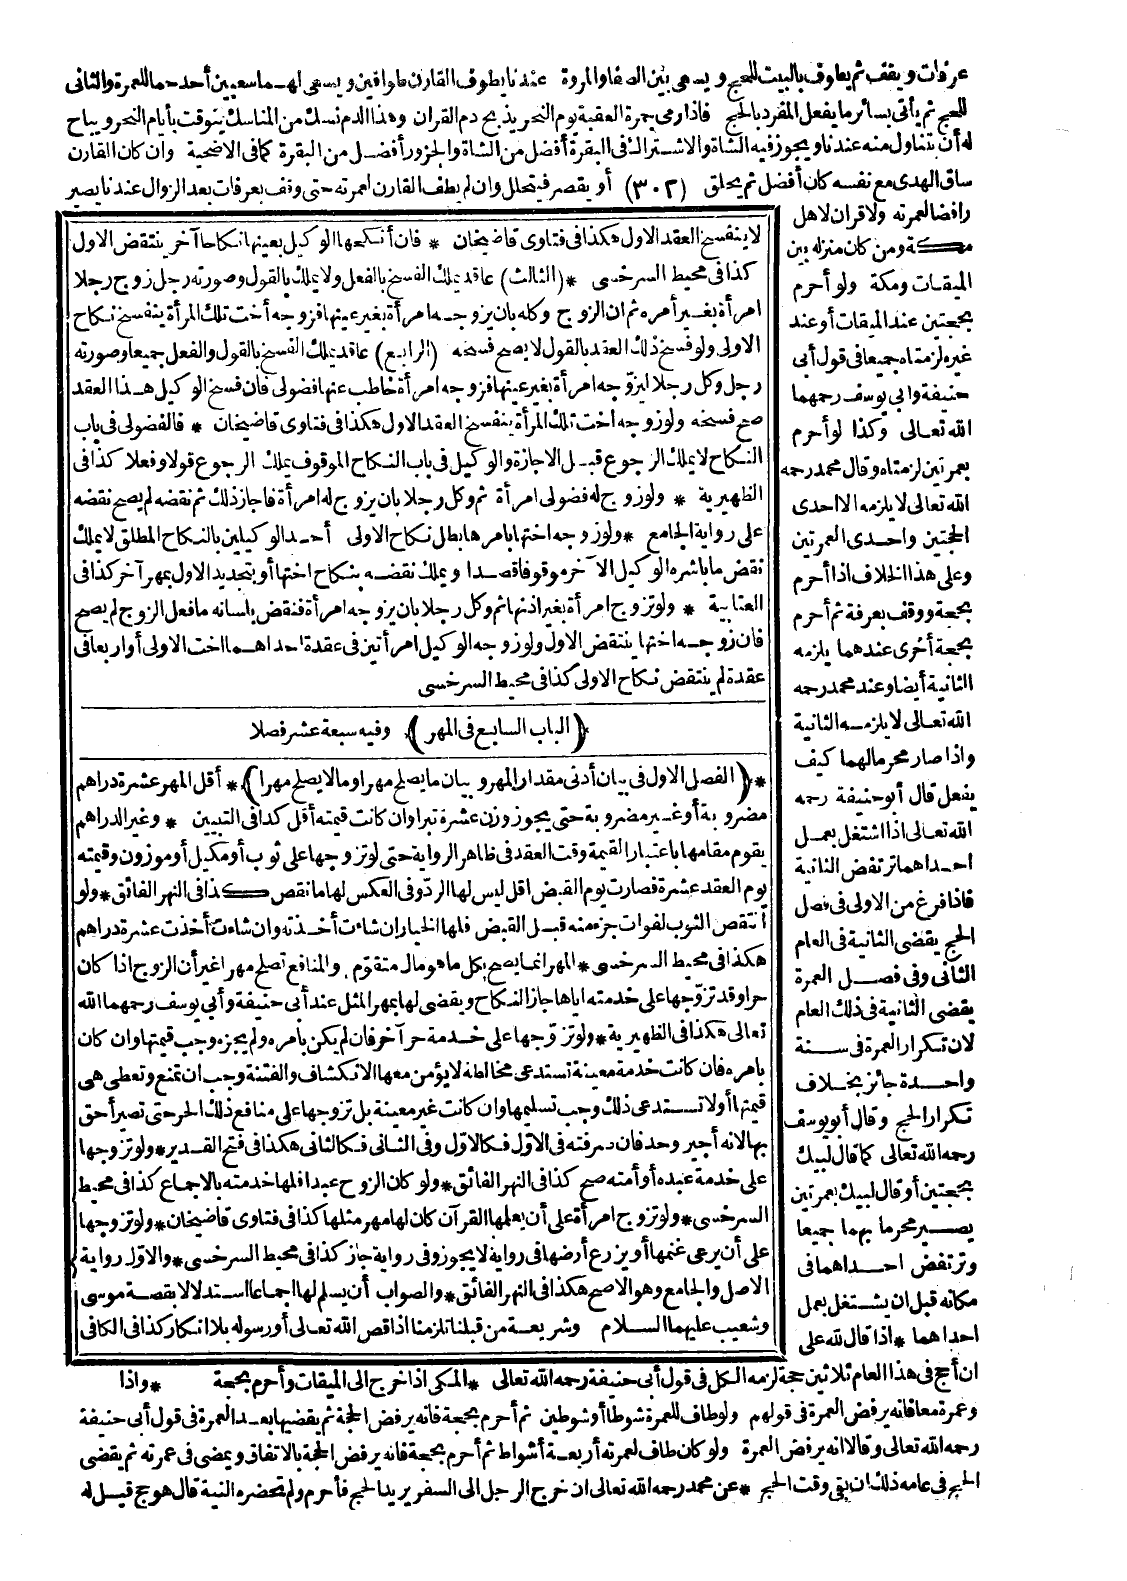 عرفات ويقف ثم يطوف بالبيت للحج ويسعى بين الصفا والمروة عندنا يطوف القارن طوافين ويسعى لهما سعيين أحدهما للعمرة والثانى
للحج ثم يأتى بسائر ما يفعل المفرد بالحج فاذا رمى جمرة العقبة يوم النحر يذبح دم القران وهذا الدم نسك من المناسك يتوقت بأيام النحر ويباح
له أن يتناول منه عندنا ويجوز فيه الشاة والاشتراك فى البقرة أفضل من الشاة والجزور أفضل من البقرة كما فى الاضحية وان كان القارن
ساق الهدى مع نفسه كان أفضل ثم يحلق (٣٠٢) أو يقصر فيتحلل وان لم يطف القارن لعمرته حتى وقف بعرفات بعد الزوال عندنا يصير
رافضا لعمرته ولا قران لاهل
مكة ومن كان منزله بين
الميقات ومكة ولو أحرم
بحجتين عند الميقات أو عند
غيره لزمتاه جميعا فى قول أبى
حنيفة وابى يوسف رحمهما
الله تعالى وكذا لو أحرم
بعمرتين لزمتاه وقال محمد رحمه
الله تعالى لا يلزمه الا احدى
الحجتين واحدى العمرتين
وعلى هذا الخلاف اذا أحرم
بحجة ووقف بعرفة ثم أحرم
بحجة أخرى عندهما يلزمه
الثانية أيضا وعند محمد رحمه
الله تعالى لا يلزمه الثانية
واذا صار محرما لهما كيف
يفعل قال أبو حنيفة رحمه
الله تعالى اذا اشتغل بعمل
احداهما ترتفض الثانية
فاذا فرغ من الاولى فى فصل
الحج يقضى الثانية فى العام
الثانى وفى فصل العمرة
يقضى الثانية فى ذلك العام
لان تكرار العمرة فى سنة
واحدة جائز بخلاف
تكرار الحج وقال أبو يوسف
رحمه الله تعالى كما قال لبيك
بحجتين أو قال لبيك بعمرتين
يصير محرما بهما جميعا
وترتفض احداهما فى
مكانه قبل ان يشتغل بعمل
احداهما * اذا قال لله على
لا ينفسخ العقد الاول هكذا فى فتاوى قاضيخان * فان أنكحها الوكيل بعينها نكاحا آخر ينتقض الاول
كذا فى محيط السرخسى * (الثالث) عاقد يملك الفسخ بالفعل ولا يملك بالقول وصورته رجل زوج رجلا
امرأة بغير أمره ثم ان الزوج وكله بان يزوجه امرأة بغير عينها فزوجه أخت تلك المرأة ينفسخ نكاح
الاولى ولو فسخ ذلك العقد بالقول لا يصح فسخه (الرابع) عاقد يملك الفسخ بالقول والفعل جميعا وصورته
رجل وكل رجلا ليزوجه امرأة بغير عينها فزوجه امرأة خاطب عنها فضولى فان فسخ الوكيل هذا العقد
صح فسخه ولو زوجه اخت تلك المرأة ينفسخ العقد الاول هكذا فى فتاوى قاضيخان * فالفضولى فى باب
النكاح لا يملك الرجوع قبل الاجازة والوكيل فى باب النكاح الموقوف يملك الرجوع قولا وفعلا كذا فى
الظهيرية * ولو زوج له فضولى امرأة ثم وكل رجلا بان يزوج له امرأة فاجاز ذلك ثم نقضه لم يصح نقضه
على رواية الجامع * ولو زوجه اختها بامرها بطل نكاح الاولى أحد الوكيلين بالنكاح المطلق لا يملك
نقض ما باشره الوكيل الآخر موقوفا قصدا ويملك نقضه بنكاح اختها أو بتجديد الاول بمهر آخر كذا فى
العتابية * ولو تزوج امرأة بغير اذنها ثم وكل رجلا بان يزوجه امرأة فنقض بلسانه ما فعل الزوج لم يصح
فان زوجه اختها ينتقض الاول ولو زوجه الوكيل امرأتين فى عقدة احداهما اخت الاولى أو اربعا فى
عقدة لم ينتقض نكاح الاولى كذا فى محيط السرخسى
(الباب السابع فى المهر) وفيه سبعة عشر فصلا
* (الفصل الاول فى بيان أدنى مقدار المهر وبيان ما يصلح مهرا وما لا يصلح مهرا) * أقل المهر عشرة دراهم
مضروبة أو غير مضروبة حتى يجوز وزن عشرة تبرا وان كانت قيمته أقل كذا فى التبيين * وغير الدراهم
يقوم مقامها باعتبار القيمة وقت العقد فى ظاهر الرواية حتى لو تزوجها على ثوب أو مكيل أو موزون وقيمته
يوم العقد عشرة فصارت يوم القبض اقل ليس لها الرد وفى العكس لها ما نقص كذا فى النهر الفائق * ولو
انتقص الثوب لفوات جزء منه قبل القبض فلها الخيار ان شاءت أخذته وان شاءت أخذت عشرة دراهم
هكذا فى محيط السرخسى * المهر انما يصح بكل ما هو مال متقوم والمنافع تصلح مهرا غير أن الزوج اذا كان
حرا وقد تزوجها على خدمته اياها جاز النكاح ويقضى لها بمهر المثل عند أبى حنيفة وأبى يوسف رحمهما الله
تعالى هكذا فى الظهيرية * ولو تزوجها على خدمة حر آخر فان لم يكن بامره ولم يجزه وجب قيمتها وان كان
بامره فان كانت خدمة معينة تستدعى مخالطة لا يؤمن معها الانكشاف والفتنة وجب ان تمنع وتعطى هى
قيمتها أو لا تستدعى ذلك وجب تسليمها وان كانت غير معينة بل تزوجها على منافع ذلك الحر حتى تصير أحق
بها لانه أجير وحد فان صرفته فى الاول فكالاول وفى الثانى فكالثانى هكذا فى فتح القدير * ولو تزوجها
على خدمة عبده أو أمته صح كذا فى النهر الفائق * ولو كان الزوج عبدا فلها خدمته بالاجماع كذا فى محيط
السرخسى * ولو تزوج امرأة على أن يعلمها القرآن كان لها مهر مثلها كذا فى فتاوى قاضيخان * ولو تزوجها
على أن يرعى غنمها أو يزرع أرضها فى رواية لا يجوز وفى رواية جاز كذا فى محيط السرخسى * والاول رواية
الاصل والجامع وهو الاصح هكذا فى النهر الفائق * والصواب أن يسلم لها اجماعا استدلالا بقصة موسى
وشعيب عليهما السلام وشريعة من قبلنا تلزمنا اذا قص الله تعالى أو رسوله بلا انكار كذا فى الكافى
ان أحج فى هذا العام ثلاثين حجة لزمه الكل فى قول أبى حنيفة رحمه الله تعالى * المكى اذا خرج الى الميقات وأحرم بحجة * واذا
وعمرة معا فانه يرفض العمرة فى قولهم ولو طاف للعمرة شوطا أو شوطين ثم أحرم بحجة فانه يرفض الحجة ثم يقضيها بعد العمرة فى قول أبى حنيفة
رحمه الله تعالى وقالا انه يرفض العمرة ولو كان طاف لعمرته أربعة أشواط ثم أحرم بحجة فانه يرفض الحجة بالاتفاق ويمضى فى عمرته ثم يقضى
الحج فى عامه ذلك ان بقى وقت الحج * عن محمد رحمه الله تعالى ان خرج الرجل الى السفر يريد الحج فأحرم ولم تحضره النية قال هو حج قيل له